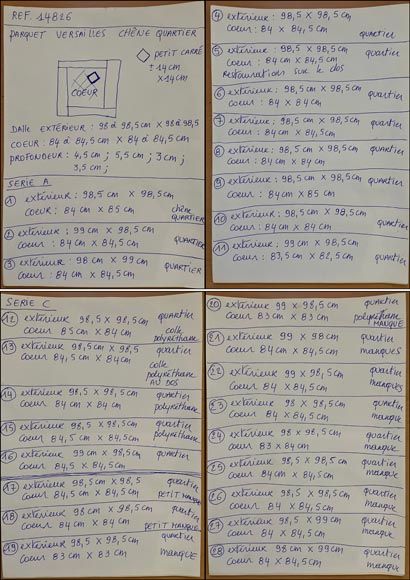 REF. 14826
PARQUET VERSAILLES CHÊNE QUARTIER
PETIT CARRÉ
± 14 cm
x 14 cm
COEUR
DALLE EXTÉRIEUR : 98 à 98,5 cm x 98 à 98,5
COEUR : 84 à 84,5 cm x 84 à 84,5 cm
PROFONDEUR : 4,5 cm ; 5,5 cm ; 3 cm ;
3,5 cm ;
SERIE A
1 extérieur : 98,5 cm x 98,5 cm
coeur : 84 cm x 85 cm chêne QUARTIER
2 extérieur : 99 cm x 98,5 cm
coeur : 84 cm x 84,5 cm QUARTIER
3 extérieur : 98 cm x 99 cm
coeur : 84 cm x 84,5 cm QUARTIER
4 extérieur : 98,5 x 98,5 cm
coeur : 84 x 84,5 cm quartier
5 extérieur : 98,5 x 98,5 cm quartier
coeur : 84 cm x 84,5 cm
Restaurations sur le dos
6 extérieur : 98,5 x 98,5 cm quartier
coeur : 84 x 84 cm
7 extérieur : 98,5 cm x 98,5 cm quartier
coeur : 84 cm x 84,5 cm
8 extérieur : 98,5 cm x 98,5 cm quartier
coeur : 84 cm x 84,5 cm
9 extérieur : 98,5 cm x 98,5 cm quartier
coeur : 84 cm x 85 cm
10 extérieur : 98,5 cm x 98,5 cm quartier
coeur : 84 cm x 84 cm
11 extérieur : 99 cm x 98,5 cm quartier
coeur : 83,5 cm x 82,5 cm
SERIE C
12 extérieur 98,5 x 98,5 cm quartier
coeur 85 cm x 84 cm colle polyréthane
13 extérieur 98,5 cm x 98,5 quartier
coeur 84,5 cm x 84 cm colle
polyréthane
AU DOS
14 extérieur 98,5 x 98,5 cm quartier
coeur 84 cm x 84 cm polyréthane
15 extérieur 98,5 x 98,5 cm quartier
coeur 84,5 cm x 84,5 cm polyréthane
16 extérieur 99 cm x 98,5 cm quartier
coeur 84,5 x 84,5 cm
17 extérieur 98,5 cm x 98,5 quartier
coeur 84,5 cm x 84,5 cm PETIT manque
18 extérieur 98 cm x 98,5 cm quartier
coeur 84 cm x 84 cm PETIT MANQUE
19 extérieur 98,5 x 98,5 cm quartier
coeur 83 cm x 83 cm MANQUE
20 extérieur 99 x 98,5 cm quartier
coeur 83 cm x 83 cm polyréthane
MANQUE
21 extérieur 99 x 98 cm quartier
coeur 84 cm x 84,5 cm manques
22 extérieur 99 x 99 cm quartier
coeur 84 x 84,5 cm manques
23 extérieur 98 x 98,5 cm quartier
coeur 84 x 84,5 cm manque
24 extérieur 98 x 98,5 cm quartier
coeur 83 x 84 cm manque
25 extérieur 98,5 x 98,5 cm quartier
coeur 84 cm x 84,5 cm manque
26 extérieur 98,5 x 98,5 cm quartier
coeur 84 x 84,5 cm manque
27 extérieur 98,5 x 99 cm quartier
coeur 84 x 84,5 cm manque
28 extérieur 98 cm x 99 cm quartier
coeur 84 cm x 84,5 cm manque